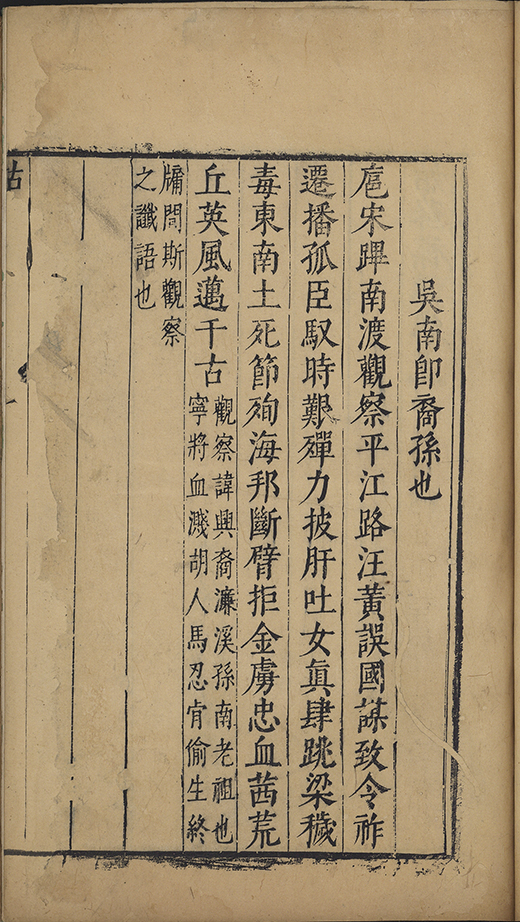 吳南卽裔孫也
扈宋蹕南渡觀察平江路汪黃誤國謀致令祚
遷播孤臣馭時艱殫力披肝吐女眞肆跳梁穢
毒東南土死節殉海邦斷臂拒金虜忠血茜荒
丘英風邁千古
觀察諱興裔濂溪孫南老祖也
寧將血濺胡人馬忍肯偷生終
牖間斯觀察
之讖語也
古